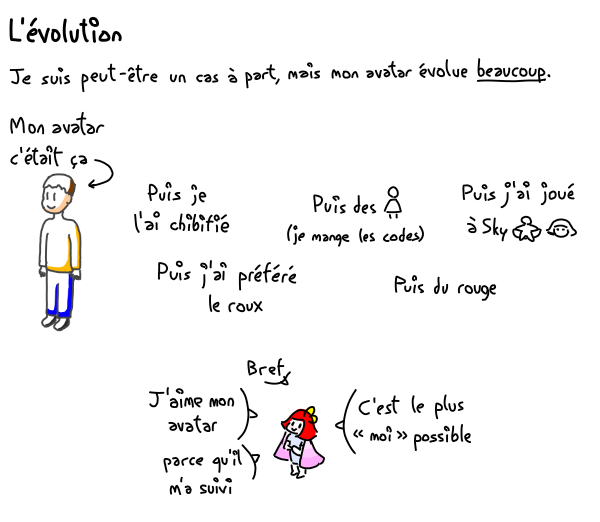 L'évolution
Je suis peut-être un cas à part, mais mon avatar évolue beaucoup.
Mon avatar
c'était ça
Puis je
l'ai chibifié
Puis des
(je mange les codes)
Puis j'ai joué
à Sky
Puis j'ai préféré
le roux
Puis du rouge
Bref,
J'aime mon
avatar
parce qu'il
m'a suivi
C'est le plus
« moi » possible